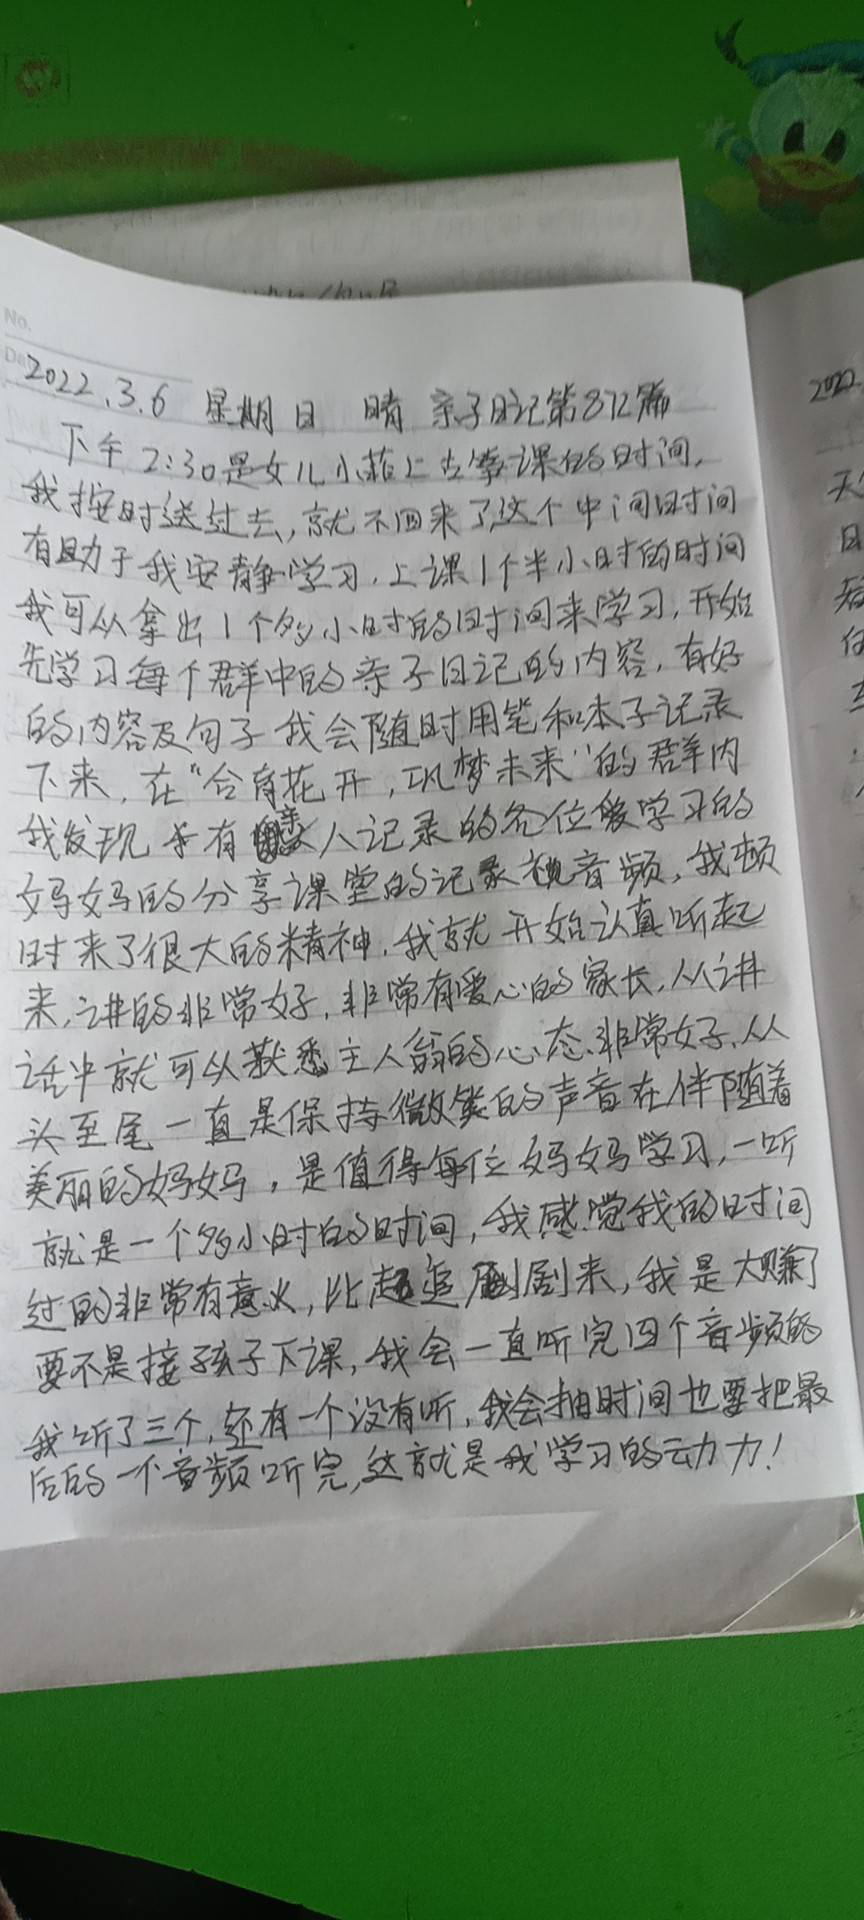 No.
2022.3.6 星期日 晴 亲子日记第872篇
下午2:30是女儿小菲上古筝课的时间,
我按时送过去,就不回来了,这个中间时间
有助于我安静学习,上课1个半小时的时间
我可从拿出1个多小时的时间来学习,开始
先学习每个群中的亲子日记的内容,有好
的内容及句子我会随时用笔和本子记录
下来,在“合育花开,巩梦未来”的群内
我发现有亲人记录的各位爱学习的
妈妈的分享课堂的记录视音频,我顿
时来了很大的精神,我就开始认真听起
来,讲的非常好,非常有爱心的家长,从讲
话中就可从获悉主人翁的心态非常好,从
头至尾一直是保持微笑的声音在伴随着
美丽的妈妈,是值得每位妈妈学习,一听
就是一个多小时的时间,我感觉我的时间
过的非常有意义,比起追剧来,我是大赚了
要不是接孩子下课,我会一直听完四个音频的
我听了三个,还有一个没有听,我会抽时间也要把最
后的一个音频听完,这就是我学习的动力!
2022